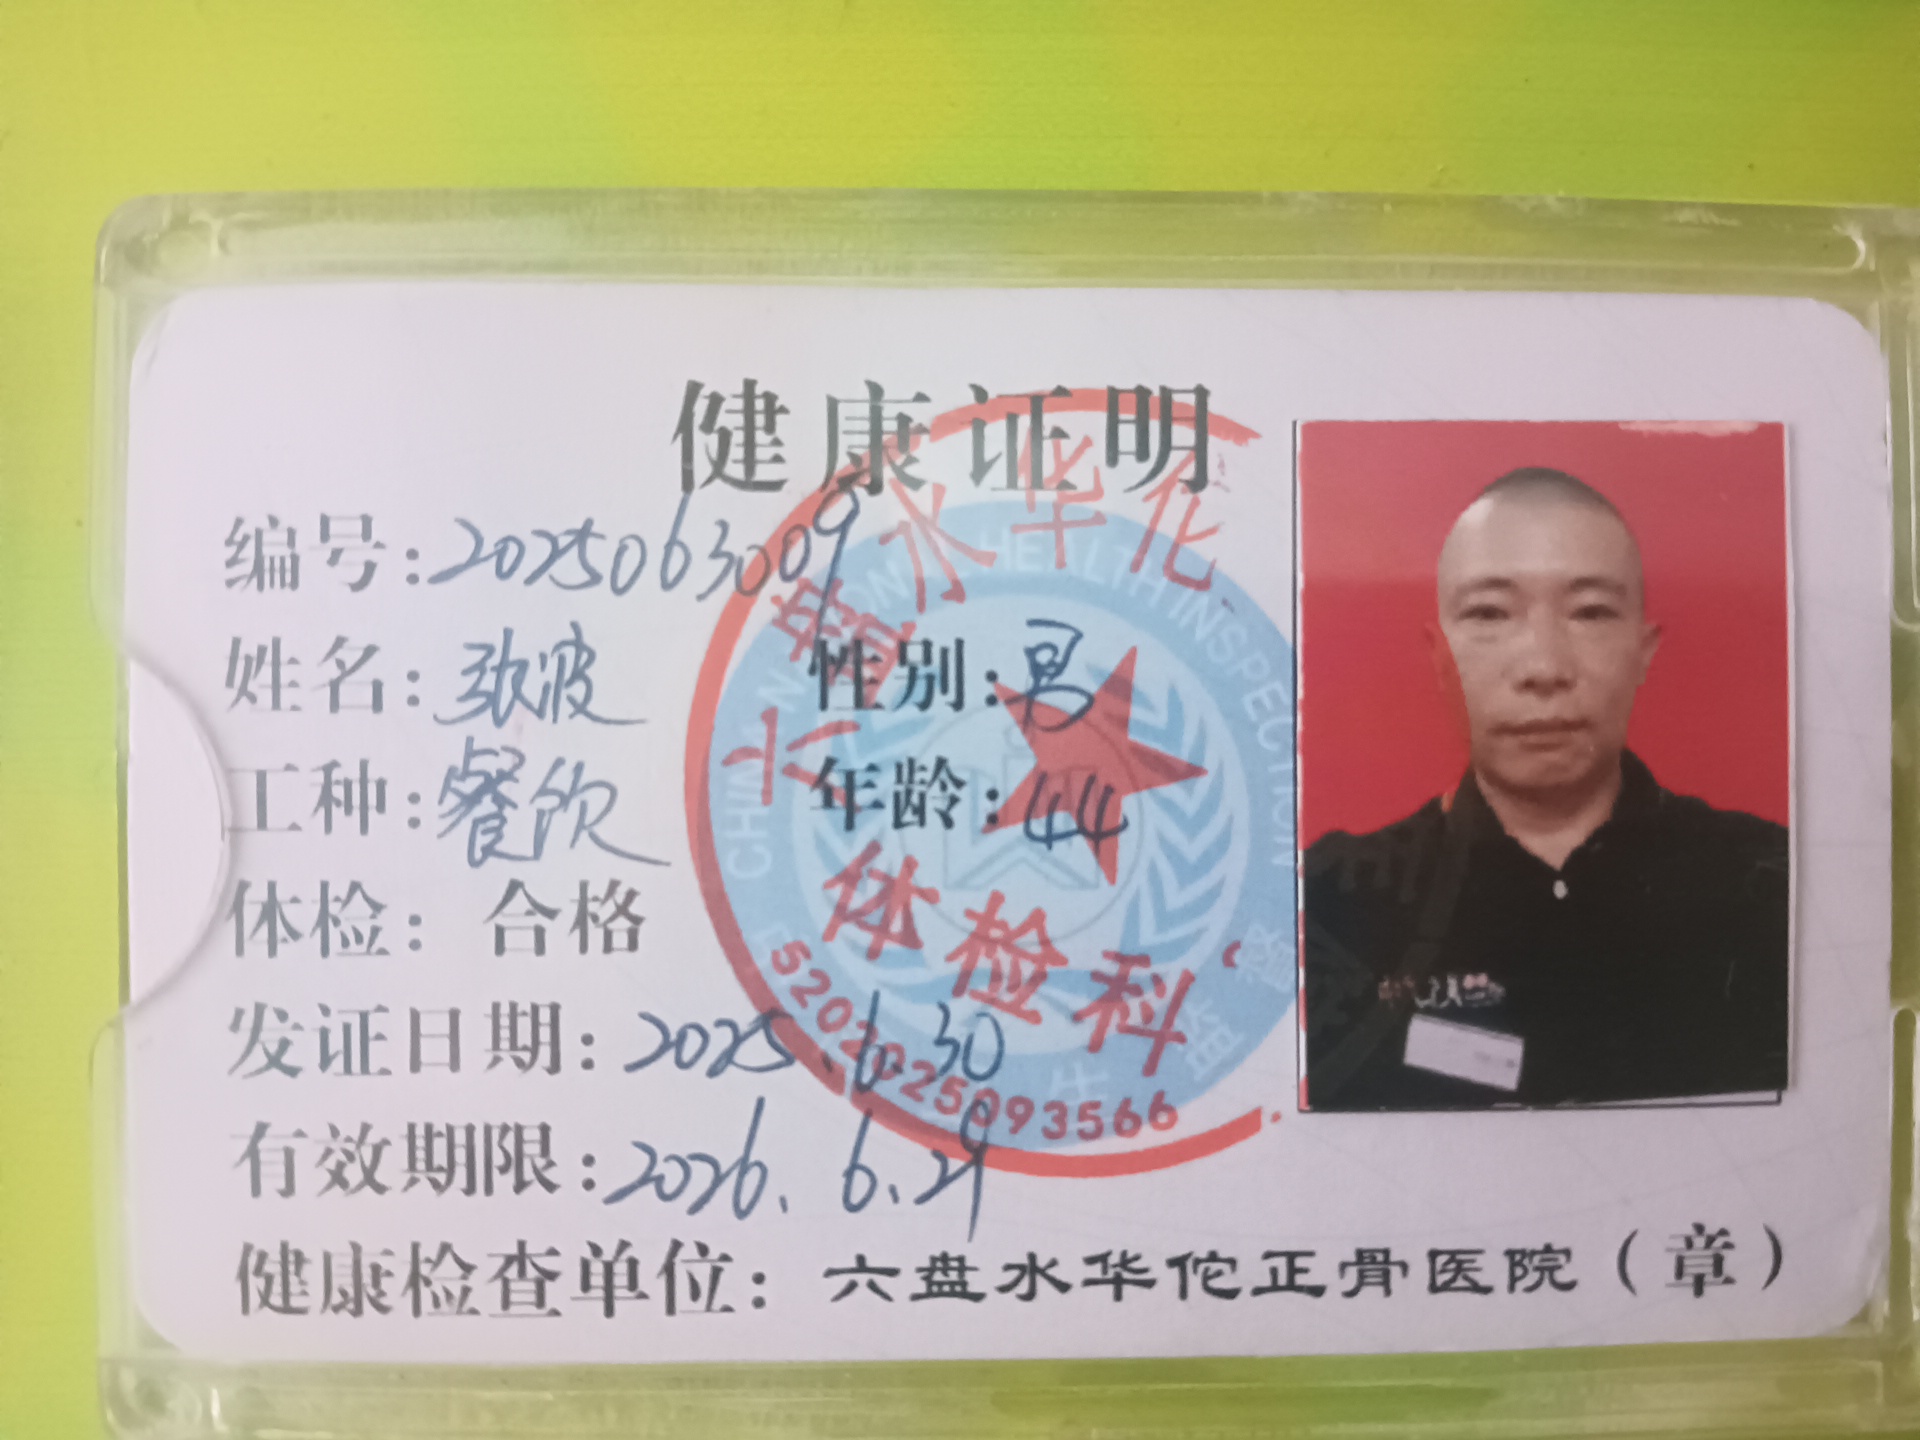 健康证明
编号：2025063009
姓名：张波 性别：男
工种：餐饮 年龄：44
体检：合格
发证日期：2025.6.30
有效期限：2026.6.29
健康检查单位：六盘水华佗正骨医院（章）
六盘水华佗
体检科
5202025093566
HEALTH INSPECTION